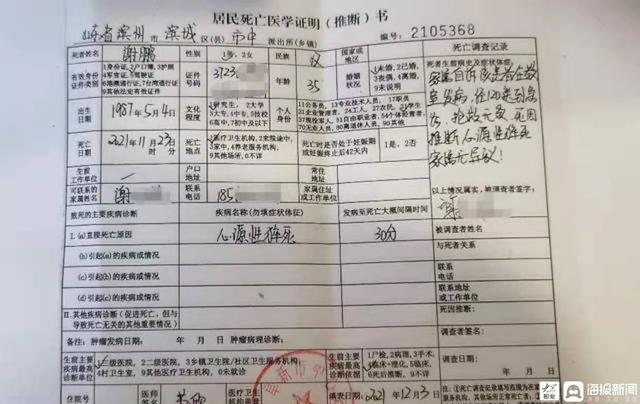 居民死亡医学证明（推断）书
山东省滨州市滨城区(县)市中派出所(乡镇) 编号：2105368
死者姓名 谢鹏 性别 1男，2女 民族 汉 国家或地区
有效身份证件类别 1身份证，2户口簿，3护照 4军官证，5驾驶证 6港澳通行证，7台湾通行证 9其他法定有效证件 证件号码 3723 年龄 35 婚姻状况 1未婚，2已婚，3丧偶，4离婚，9未说明
出生日期 1987年5月4日 文化程度 1研究生，2大学 3大专，4中专，5技校 6高中，7初中及以下 个人身份 11公务员，13专业技术人员，17职员 21企业管理者，24工人，27农民，31学生 37现役军人，51自由职业者，54个体经营者 70无业人员，80离退休人员，90其他
死亡日期 2021年11月23日 时 分 死亡地点 1医疗卫生机构，2来院途中，3家中，4养老服务机构，9其他场所，0不详 死亡时是否处于妊娠期或妊娠终止后42天内 1是，2否
生前工作单位 户口地址 常住地址
可联系的家属姓名 谢 联系电话 185 家属住址或工作单位
致死的主要疾病诊断 疾病名称(勿填症状体征) 发病至死亡大概间隔时间
I.(a)直接死亡原因 心源性猝死 30分
(b)引起(a)的疾病或情况
(c)引起(b)的疾病或情况
(d)引起(c)的疾病或情况
II.其他疾病诊断(促进死亡，但与导致死亡无关的其他重要情况)
备注：肿瘤发病日期： 年 月 日 肿瘤病理诊断：
生前主要疾病最高诊断 级医院，2二级医院，3乡镇卫生院/社区卫生服务机构，4村卫生室，9其他医疗卫生机构，0未就诊 生前主要疾病最高诊断 1尸检，2病理，3手术，4临床+理化，5临床，6死后推断，9不详
医师 医疗卫生机构 填表日期 2021年12月3日
死亡调查记录
死者生前病史及症状体征：
家属自诉该患者在教室发病，经120送到急诊，抢救无效，死因推断心源性猝死
家属无异议！
以上情况属实，被调查者签字：
谢
被调查者姓名
与死者关系
联系电话
联系地址或工作单位
死因推断
海报新闻